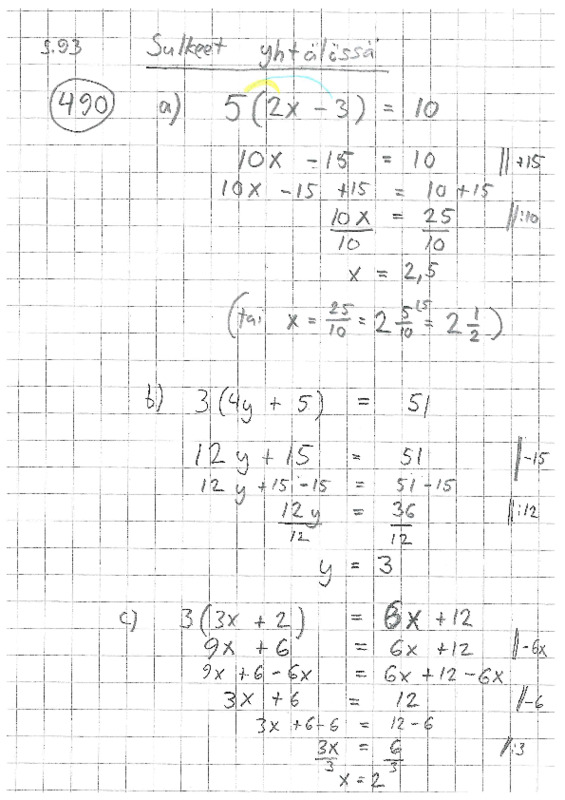 s.93 Sulkeet yhtälössä
490 a) 5(2x - 3) = 10
10x - 15 = 10 ||+15
10x - 15 + 15 = 10 + 15
10x/10 = 25/10 ||:10
x = 2,5
(tai x = 25/10 = 2 5/10 = 2 1/2)
b) 3(4y + 5) = 51
12y + 15 = 51 ||-15
12y + 15 - 15 = 51 - 15
12y/12 = 36/12 ||:12
y = 3
c) 3(3x + 2) = 6x + 12
9x + 6 = 6x + 12 ||-6x
9x + 6 - 6x = 6x + 12 - 6x
3x + 6 = 12 ||-6
3x + 6 - 6 = 12 - 6
3x/3 = 6/3 ||:3
x = 2